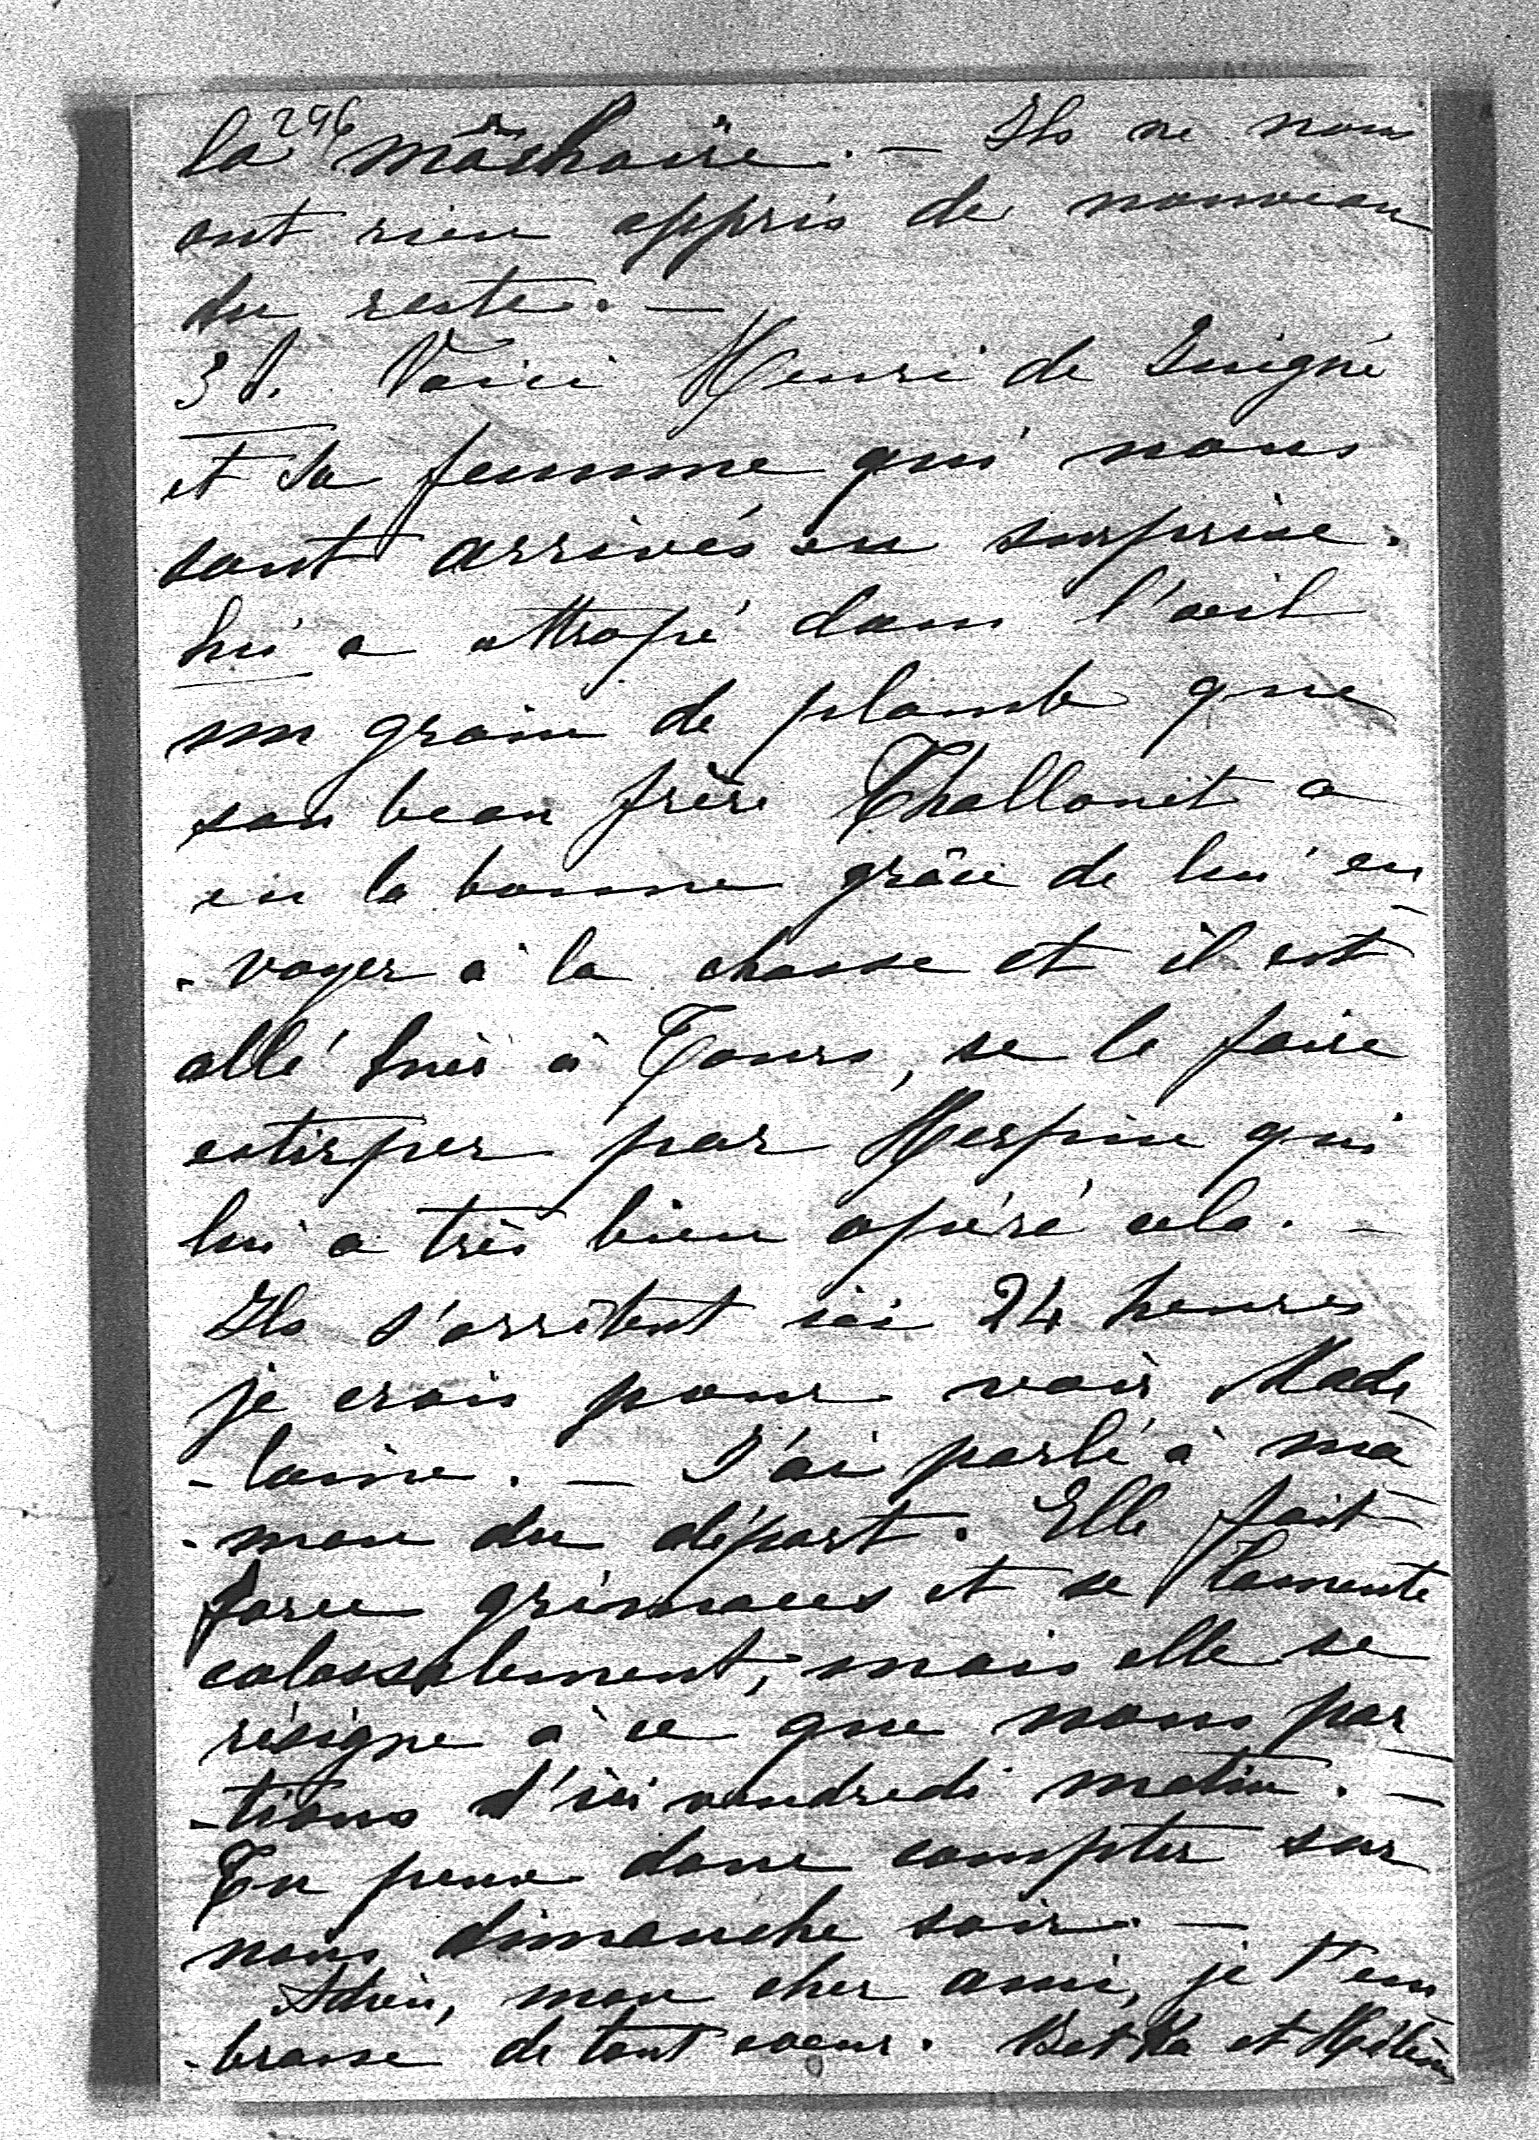 296
la mâchoire. — Ils ne nous
ont rien appris de nouveau
du reste. —
Voici Henri de Juigné
et sa femme qui nous
sont arrivés en surprise.
Lui a attrapé dans l'oeil
un grain de plomb que
son beau frère a
eu la bonne grâce de lui en
-voyer à la chasse et il est
allé hier à Tours, se le faire
extirper par qui
lui a très bien opéré cela. —
Ils s'arrêtent ici 24 heures
je crois pour voir Made
-laine. — J'ai parlé à ma
-man du départ. Elle fait
force grimaces et se lamente
colossalement, mais elle se
résigne à ce que nous par
-tions d'ici vendredi matin. —
Tu peux donc compter sur
nous dimanche soir. —
Adieu, mon cher ami, je t'em
-brasse de tout coeur. et Hélène